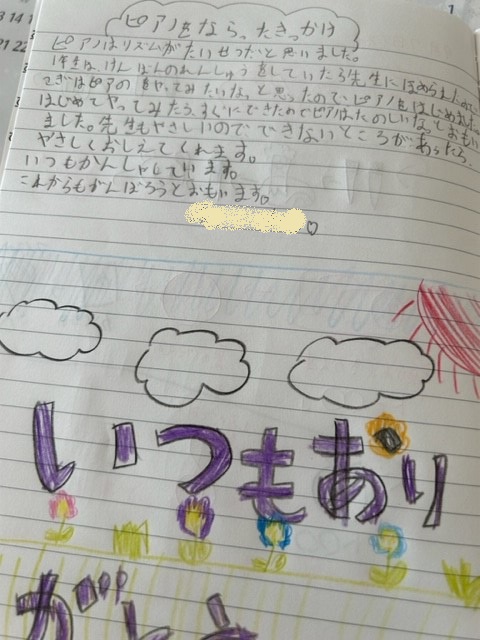 1
3 14 1
21 22
ピアノをならったきっかけ
ピアノはリズムがたいせつだと思いました。
1年生、けんばんのれんしゅうをしていたら先生にほめられたので
つぎはピアノをやってみたいな、と思ったので、ピアノをはじめました。
はじめてやってみたら、すぐにできたのでピアノはたのしいなとおもい
ました。先生もやさしいので、できないところがあったら、
やさしくおしえてくれます。
いつもかんしゃしています。
これからもがんばろうとおもいます。
いつもあり
がとう